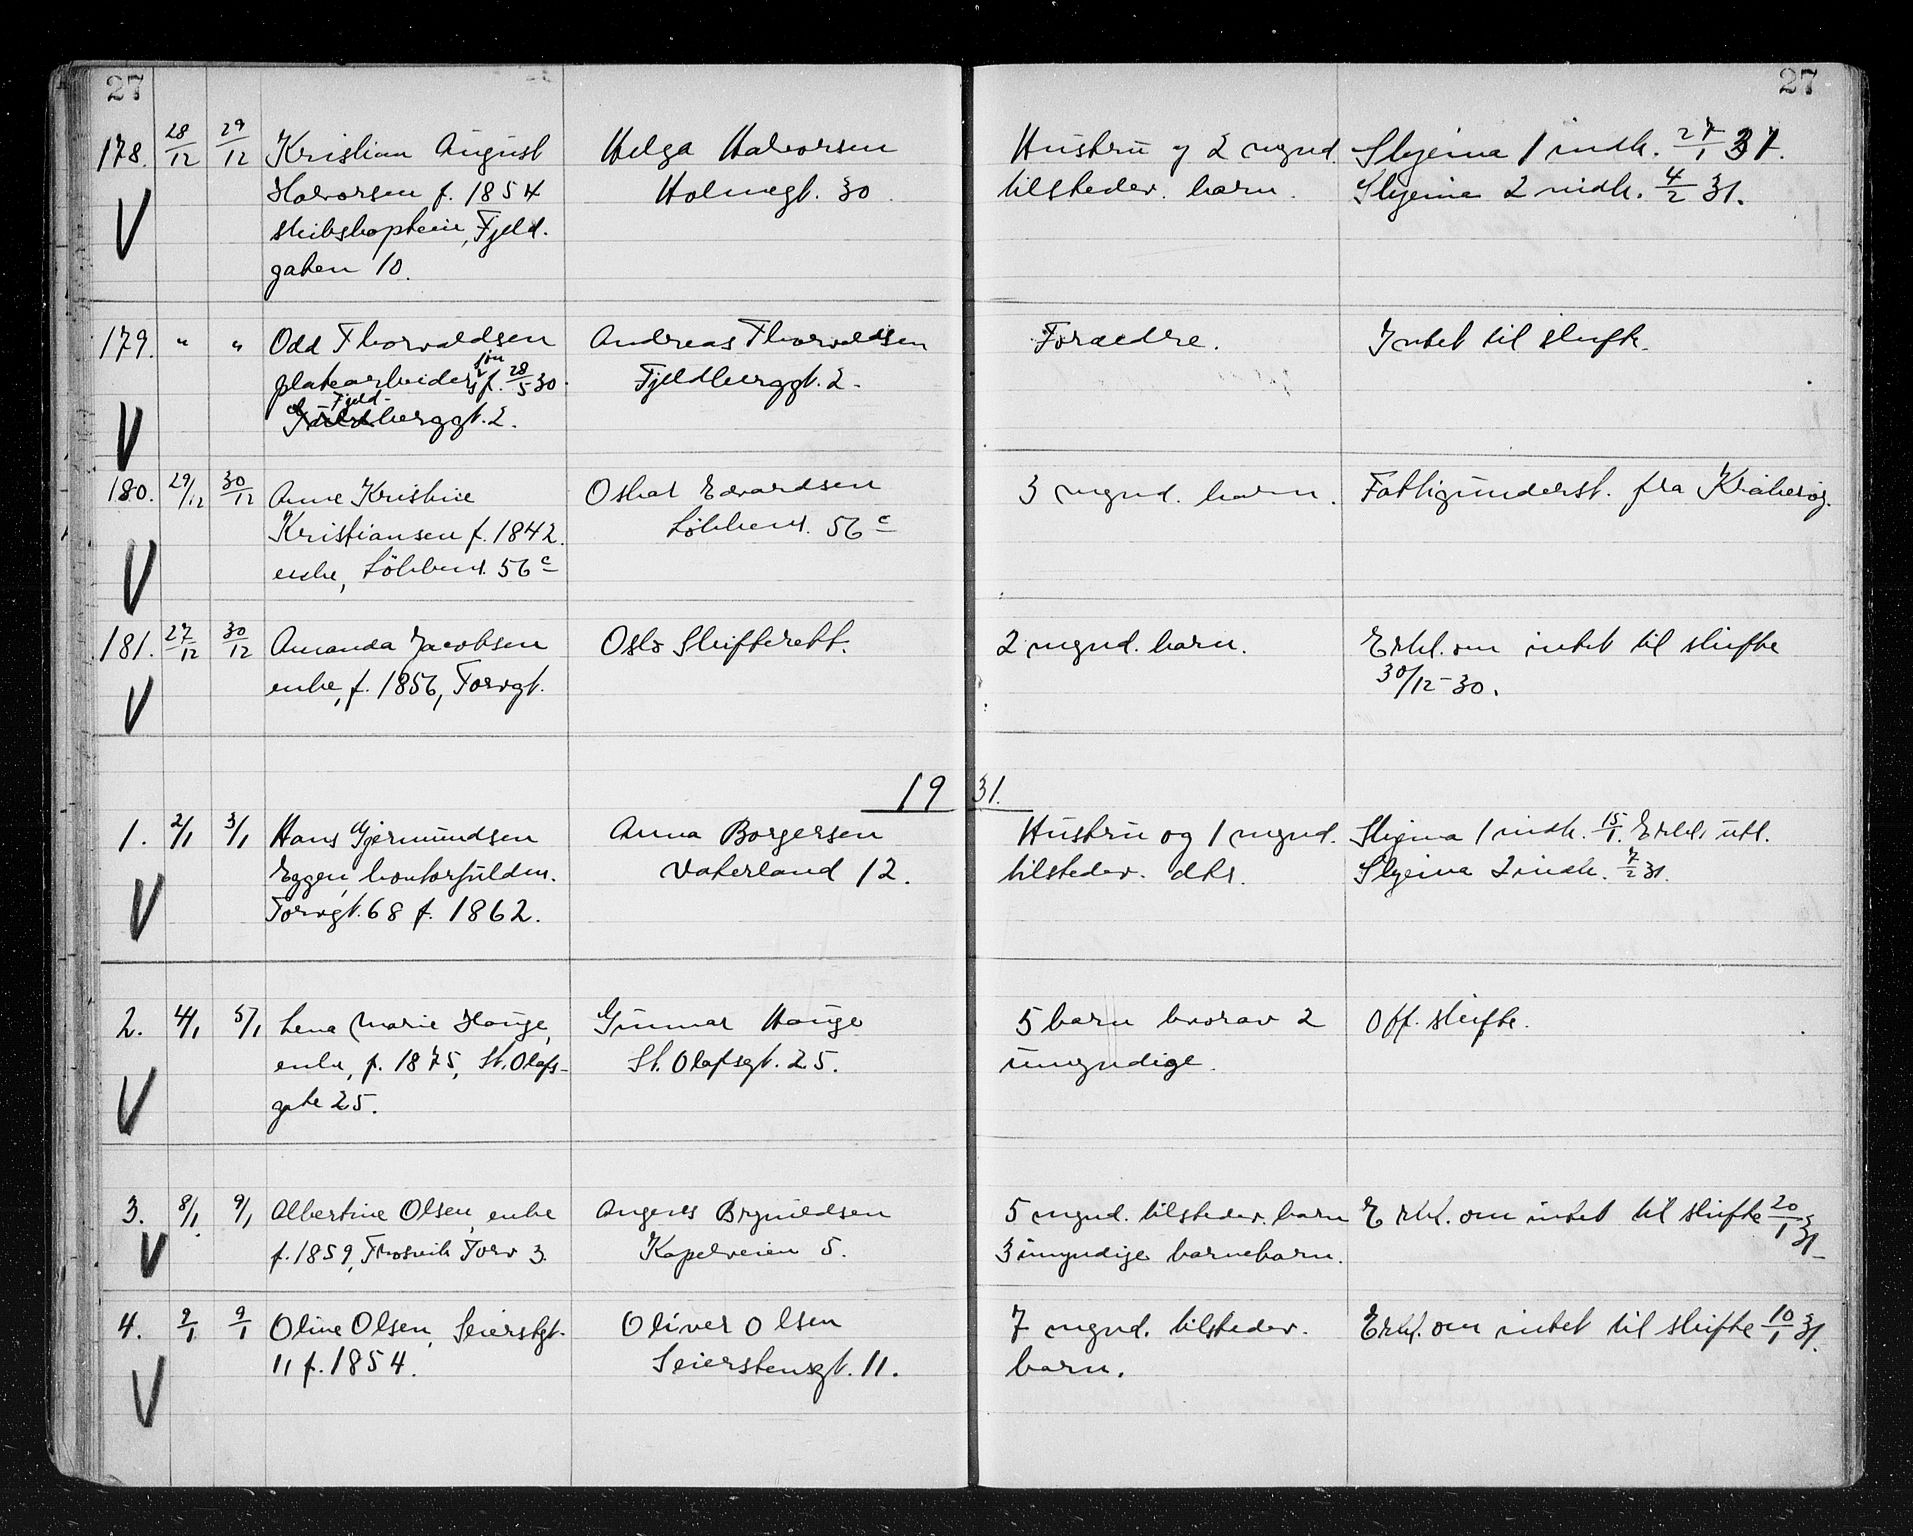 27 27
178. 28/12 29/12 Kristian August Helga Halvorsen Hustru og 2 mynd. Skjema 1 indk. 27/1 31.
Halvorsen f. 1854 Holmegt. 30. tilstedev. barn. Skjema 2 indk. 4/2 31.
V skibskaptein, Fjeld-
gaten 10.
179. " " Odd Thorvaldsen Andreas Thorvaldsen Forældre. Intet til skifte.
platearbeiders søn f. 28/5 30. Fjeldberggt. 2.
V Fjeld-
berggt. 2.
180. 29/12 30/12 Anne Kristine Oskar Edvardsen 3 mynd. barn. Fattigunderst. fra Kråkerøy.
Kristiansen f. 1842. Løkkens. 56 c
V enke, Løkkens. 56 c
181. 27/12 30/12 Amanda Jacobsen Oslo Skifterett. 2 mynd. barn. Erkl. om intet til skifte
V enke, f. 1856, Torvgt. 30/12-30.
1931.
1. 2/1 3/1 Hans Gjermundsen Anna Borgersen Hustru og 1 mynd. Skjema 1 indk. 15/1. Erkl. utl.
Eggen, kontorfuldm. Vaterland 12. tilstedev. dtr. Skjema 2 indk. 7/2 31.
V Torvgt. 68 f. 1862.
2. 4/1 5/1 Lena Marie Hauge, Gunnar Hauge 5 barn hvorav 2 Off. skifte.
enke, f. 1875, St. Olafs- St. Olafsgt. 25. umyndige.
V gate 25.
3. 8/1 9/1 Albertine Olsen, enke Angers Brynildsen 5 mynd. tilstedev. barn Erkl. om intet til skifte 20/1 31
V f. 1859, Trosvik Torv 3 Kapelveien 5. 3 umyndige barnebarn.
4. 9/1 9/1 Oline Olsen, Seierstgt. Oliver Olsen 7 mynd. tilstedev. Erkl. om intet til skifte 10/1 31.
V 11 f. 1854. Seierstensgt. 11. barn.